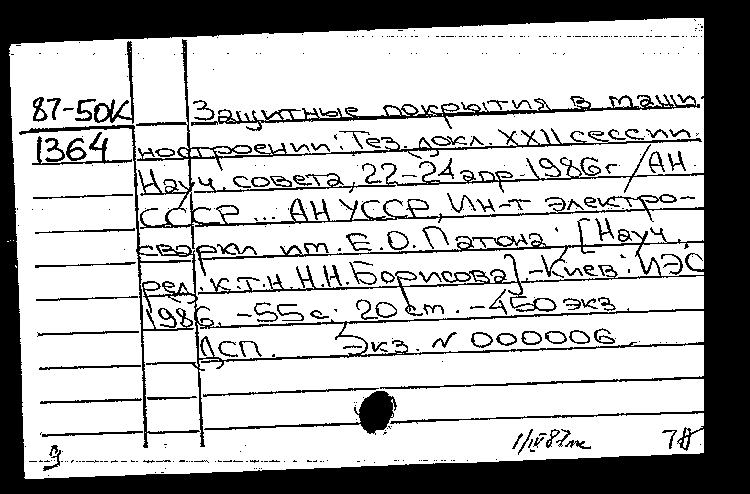 87-50К
1364
Защитные покрытия в маши-
ностроении: Тез. докл. XXII сессии
Науч. совета, 22-24 апр. 1986 г / АН
СССР ... АН УССР, Ин-т электро-
сварки им. Е.О. Патона; [Науч.
ред. к.т.н. Н.Н. Борисова]. - Киев: ИЭС
1986. - 55 с.; 20 см. - 450 экз.
ДСП. Экз. N 000006.